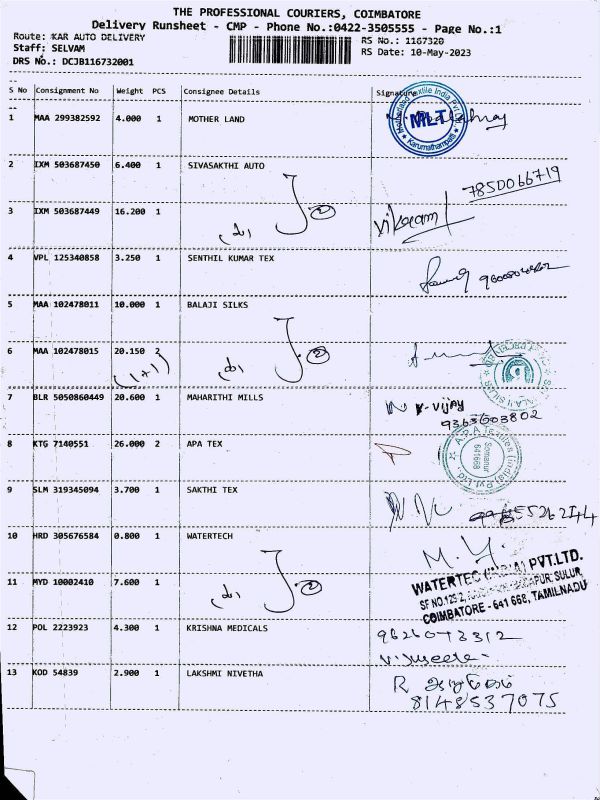 THE PROFESSIONAL COURIERS, COIMBATORE
Delivery Runsheet - CMP - Phone No.:0422-3505555 - Page No.:1
Route: KAR AUTO DELIVERY RS No.: 1167320
Staff: SELVAM RS Date: 10-May-2023
DRS No.: DCJB116732001
S No Consignment No Weight PCS Consignee Details Signature
1 MAA 299382592 4.000 1 MOTHER LAND
MLT
2 IXM 503687450 6.400 1 SIVASAKTHI AUTO
7850066719
3 IXM 503687449 16.200 1
Vikram
4 VPL 125340858 3.250 1 SENTHIL KUMAR TEX
5 MAA 102478011 10.000 1 BALAJI SILKS
6 MAA 102478015 20.150 2
(1+1)
7 BLR 5050860449 20.600 1 MAHARITHI MILLS
K-vijay
9363603802
8 KTG 7140551 26.000 2 APA TEX
A.P.A Textiles (India) Pvt Ltd.
Somanur
641668
9 SLM 319345094 3.700 1 SAKTHI TEX
10 HRD 305676584 0.800 1 WATERTECH
M. Y.
WATERTEC (INDIA) PVT.LTD.
11 MYD 10002410 7.600 1
SULUR,
COIMBATORE - 641 668, TAMILNADU
12 POL 2223923 4.300 1 KRISHNA MEDICALS
9626073312
13 KOD 54839 2.900 1 LAKSHMI NIVETHA
R
8148537075